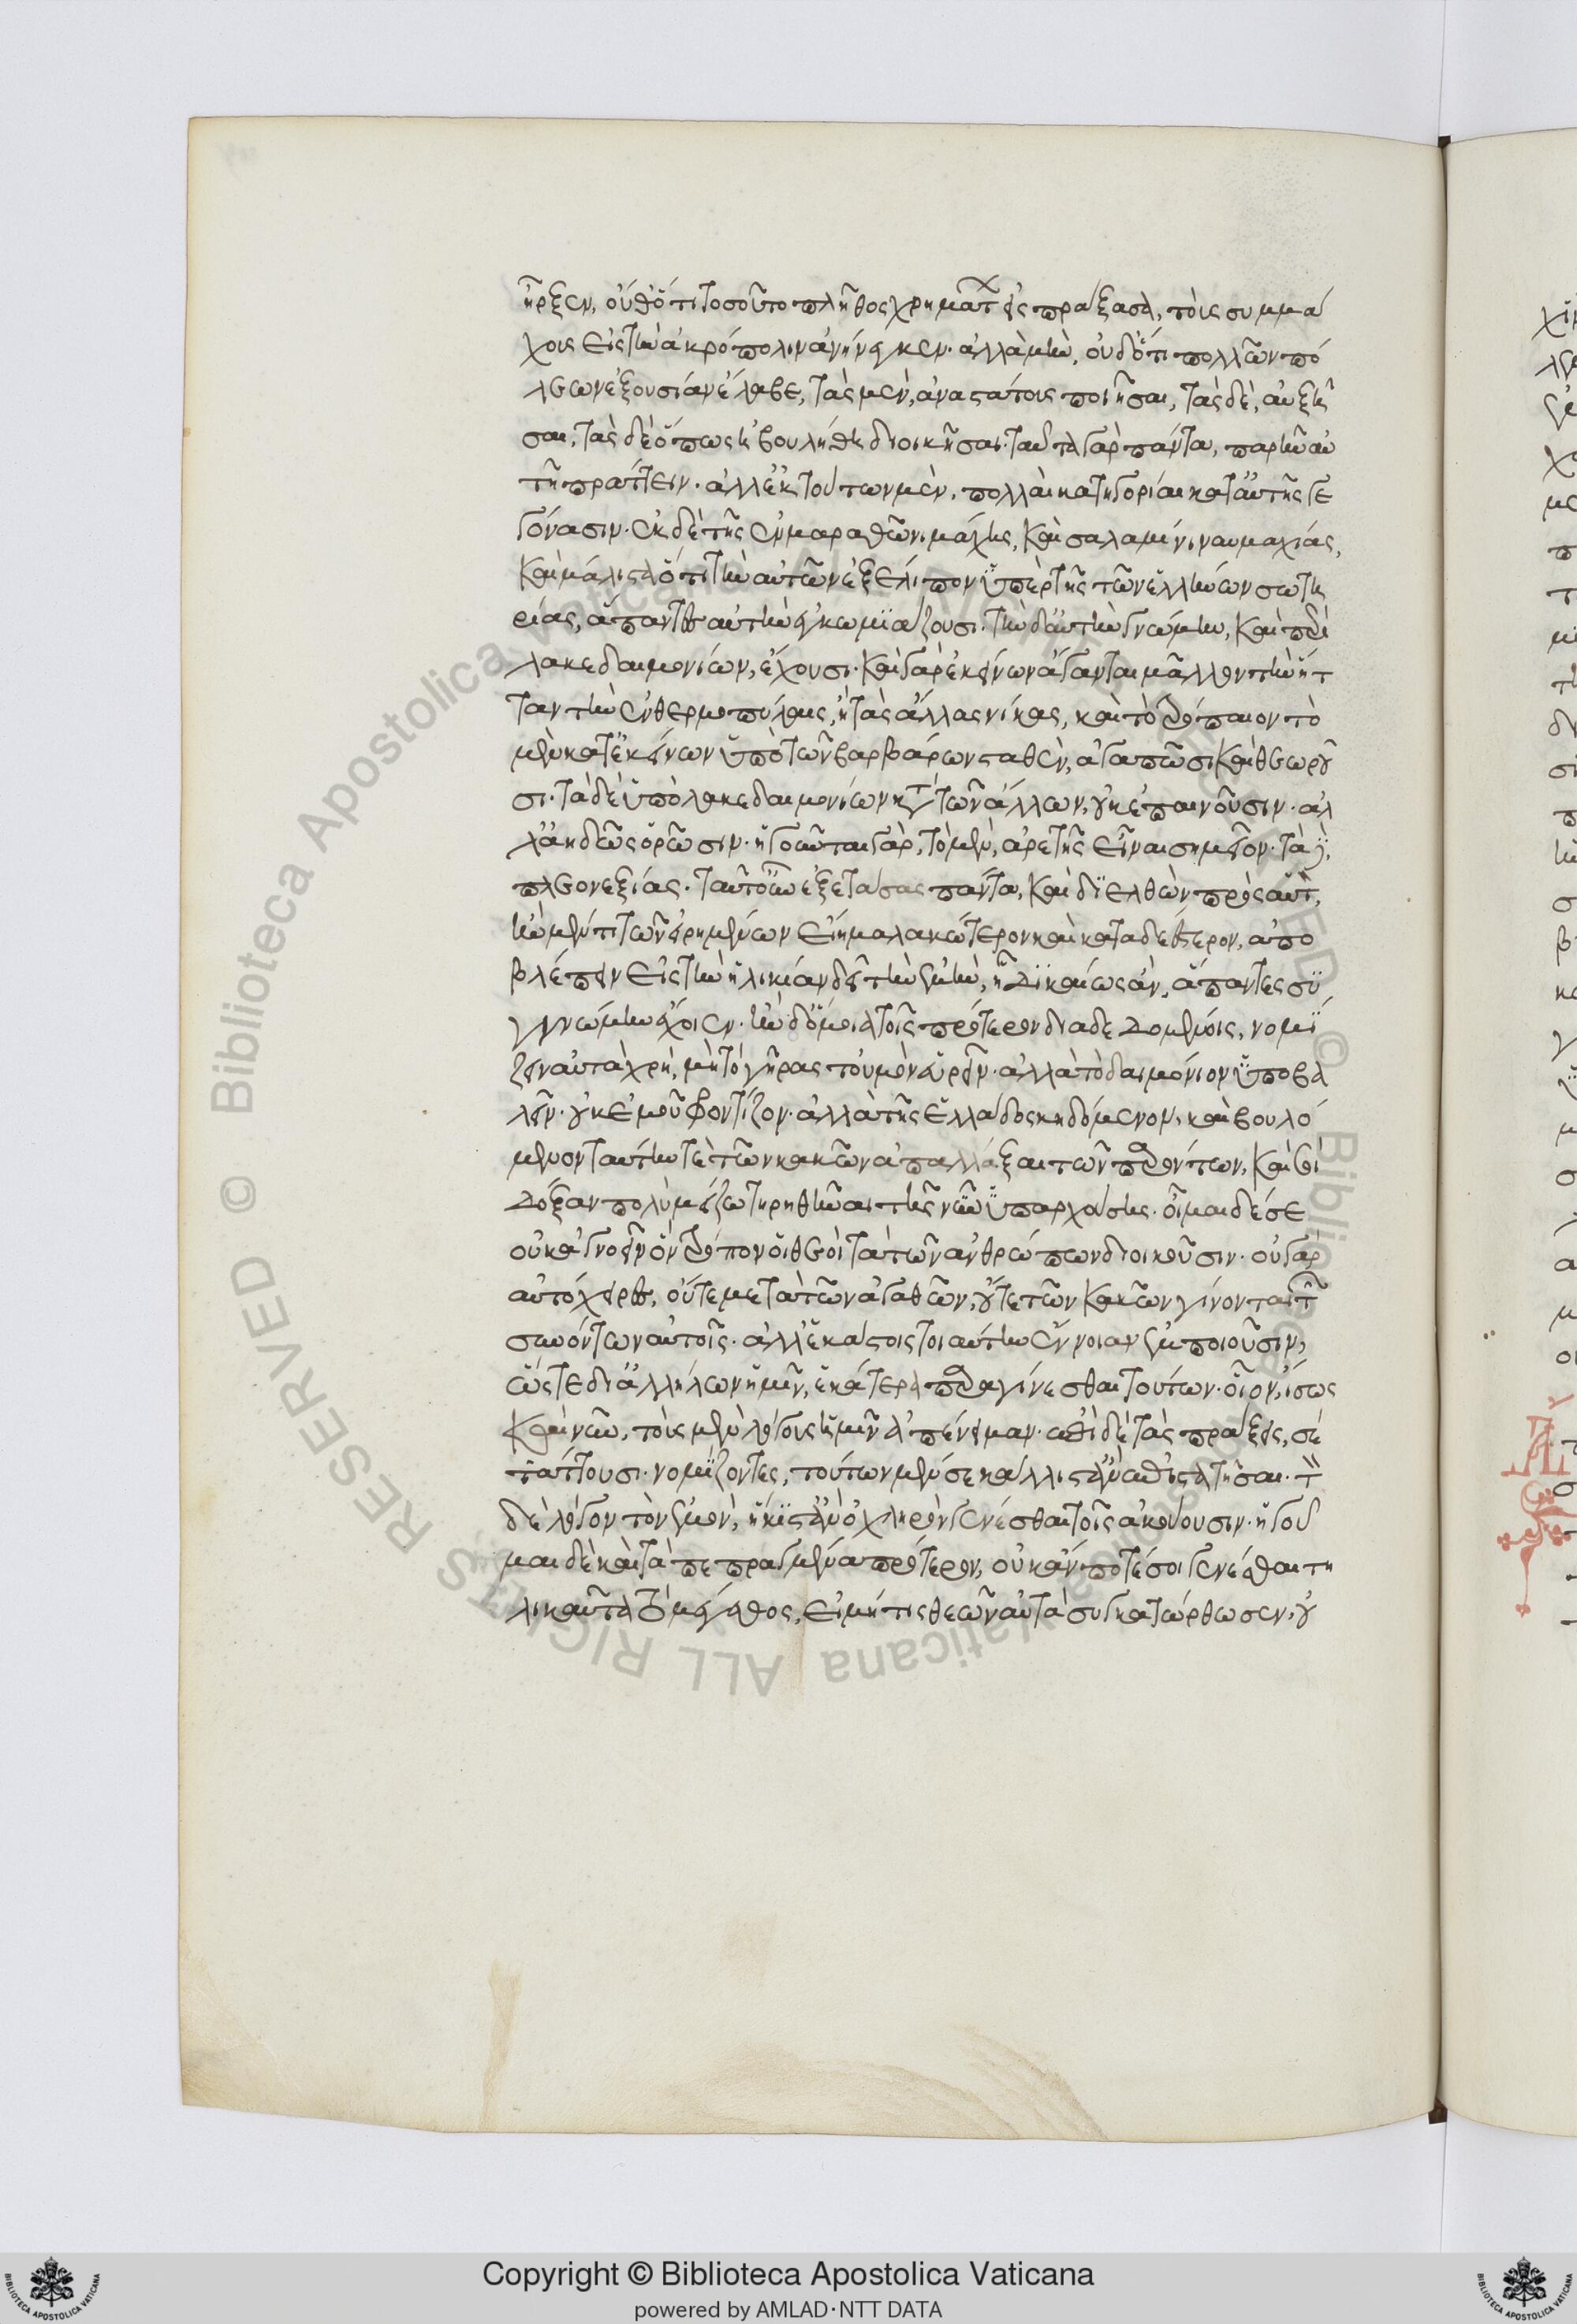 ἦρξεν, οὐθότι τοσοῦτο πλῆθος χρημάτ εἰς πράξασα, τοῖς συμμά
χοις εἰς τὴν ἀκρόπολιν ἀνήνεγκεν· ἀλλὰ μὴν, οὐδ' ὅτι πολλῶν πό
λεων ἐξουσίαν ἔλαβε, τὰς μὲν, ἀναστάτους ποιῆσαι, τὰς δὲ, αὐξῆ
σαι, τὰς δὲ ὅπως ἠβουλήθη διοικῆσαι· ταῦτα γὰρ πάντα, παρῆν αὐ
τῇ πράττειν· ἀλλ' ἐκ τούτων μὲν, πολλαὶ κατηγορίαι κατ' αὐτῆς γε
γόνασιν· ἐκ δὲ τῆς ἐν μαραθῶνι μάχης, καὶ σαλαμῖνι ναυμαχίας,
καὶ μάλιστα ὅτι τὴν αὑτῶν ἐξέλιπον ὑπὲρ τῆς τῶν ἑλλήνων σωτη
ρίας, ἅπαντες αὐτὴν ἐγκωμϊάζουσι· τὴν δ' αὐτὴν γνώμην, καὶ περὶ
λακεδαιμονίων, ἔχουσι· καὶ γὰρ ἐκείνων ἄγανται μᾶλλον τὴν ἧτ
ταν τὴν ἐν θερμοπύλαις, ἢ τὰς ἄλλας νίκας, καὶ τὸ τρόπαιον τὸ
μὲν κατ' ἐκείνων ὑπὸ τῶν βαρβάρων σταθὲν, ἀγαπῶσι καὶ θεωροῦ
σι· τὰ δὲ ὑπὸ λακεδαιμονίων κατὰ τῶν ἄλλων, οὐκ ἐπαινοῦσιν· ἀλ
λ' ἀηδῶς ὁρῶσιν· ἡγοῦνται γὰρ, τὸ μὲν, ἀρετῆς εἶναι σημεῖον· τὰ δὲ,
πλεονεξίας· ταῦτ' οὖν ἐξετάσας πάντα, καὶ διελθὼν πρὸς αὑτ,
ἢν μέν τι τῶν εἰρημένων εἴη μαλακώτερον καὶ καταδεέστερον, ἀπο
βλέπειν εἰς τὴν ἡλικίαν δεῖ τὴν ἐμὴν, ᾗ δϊκαίως ἂν, ἅπαντες συ
γγνώμην ἔχοιεν· ἢν δ' ὅμοια τοῖς πρότερον διαδεδομένοις, νομΐ
ζειν αὐτὰ χρὴ, μὴ τὸ γῆρας τοὐμὸν εὑρεῖν· ἀλλὰ τὸ δαιμόνιον ὑποβα
λεῖν· οὐκ ἐμοῦ φροντίζον· ἀλλὰ τῆς ἑλλάδος κηδόμενον, καὶ βουλό
μενον ταύτην τὲ τῶν κακῶν ἀπαλλάξαι τῶν παρόντων, καὶ σοὶ
δόξαν πολὺ μείζω τηρηθῆναι τῆς νῦν ὑπαρχούσης· οἶμαι δέ σε
οὐκ ἀγνοεῖν ὃν τρόπον οἱ θεοὶ τὰ τῶν ἀνθρώπων διοικοῦσιν· οὐ γὰρ
αὐτόχειρες, οὔτε μετὰ τῶν ἀγαθῶν, οὔτε τῶν κακῶν γίνονται τ
συνόντων αὐτοῖς· ἀλλ' ἑκάστοις τοιαύτην ἔννοιαν ἐμποιοῦσιν,
ὥστε δι' ἀλλήλων ἡμῖν, ἑκάτερα παραγίνεσθαι τούτων· οἷον, ἴσως
καὶ νῦν, τοὺς μὲν λόγους ἡμῖν ἀπένειμαν· ἐπὶ δὲ τὰς πράξεις, σὲ
τάττουσι· νομΐζοντες, τούτων μὲν σε κάλλιστ' ἂν ἐπιστατῆσαι· τ
δὲ λόγον τὸν ἐμὸν, ἥκιστ' ἂν ὀχληρὸν γενέσθαι τοῖς ἀκούουσιν· ἡγοῦ
μαι δὲ καὶ τὰ πεπραγμένα πρότερον, οὐκ ἄν ποτέ σοι γενέσθαι τη
λικαῦτα τὸ μέγεθος, εἰ μή τις θεῶν αὐτὰ συγκατώρθωσεν, οὐ